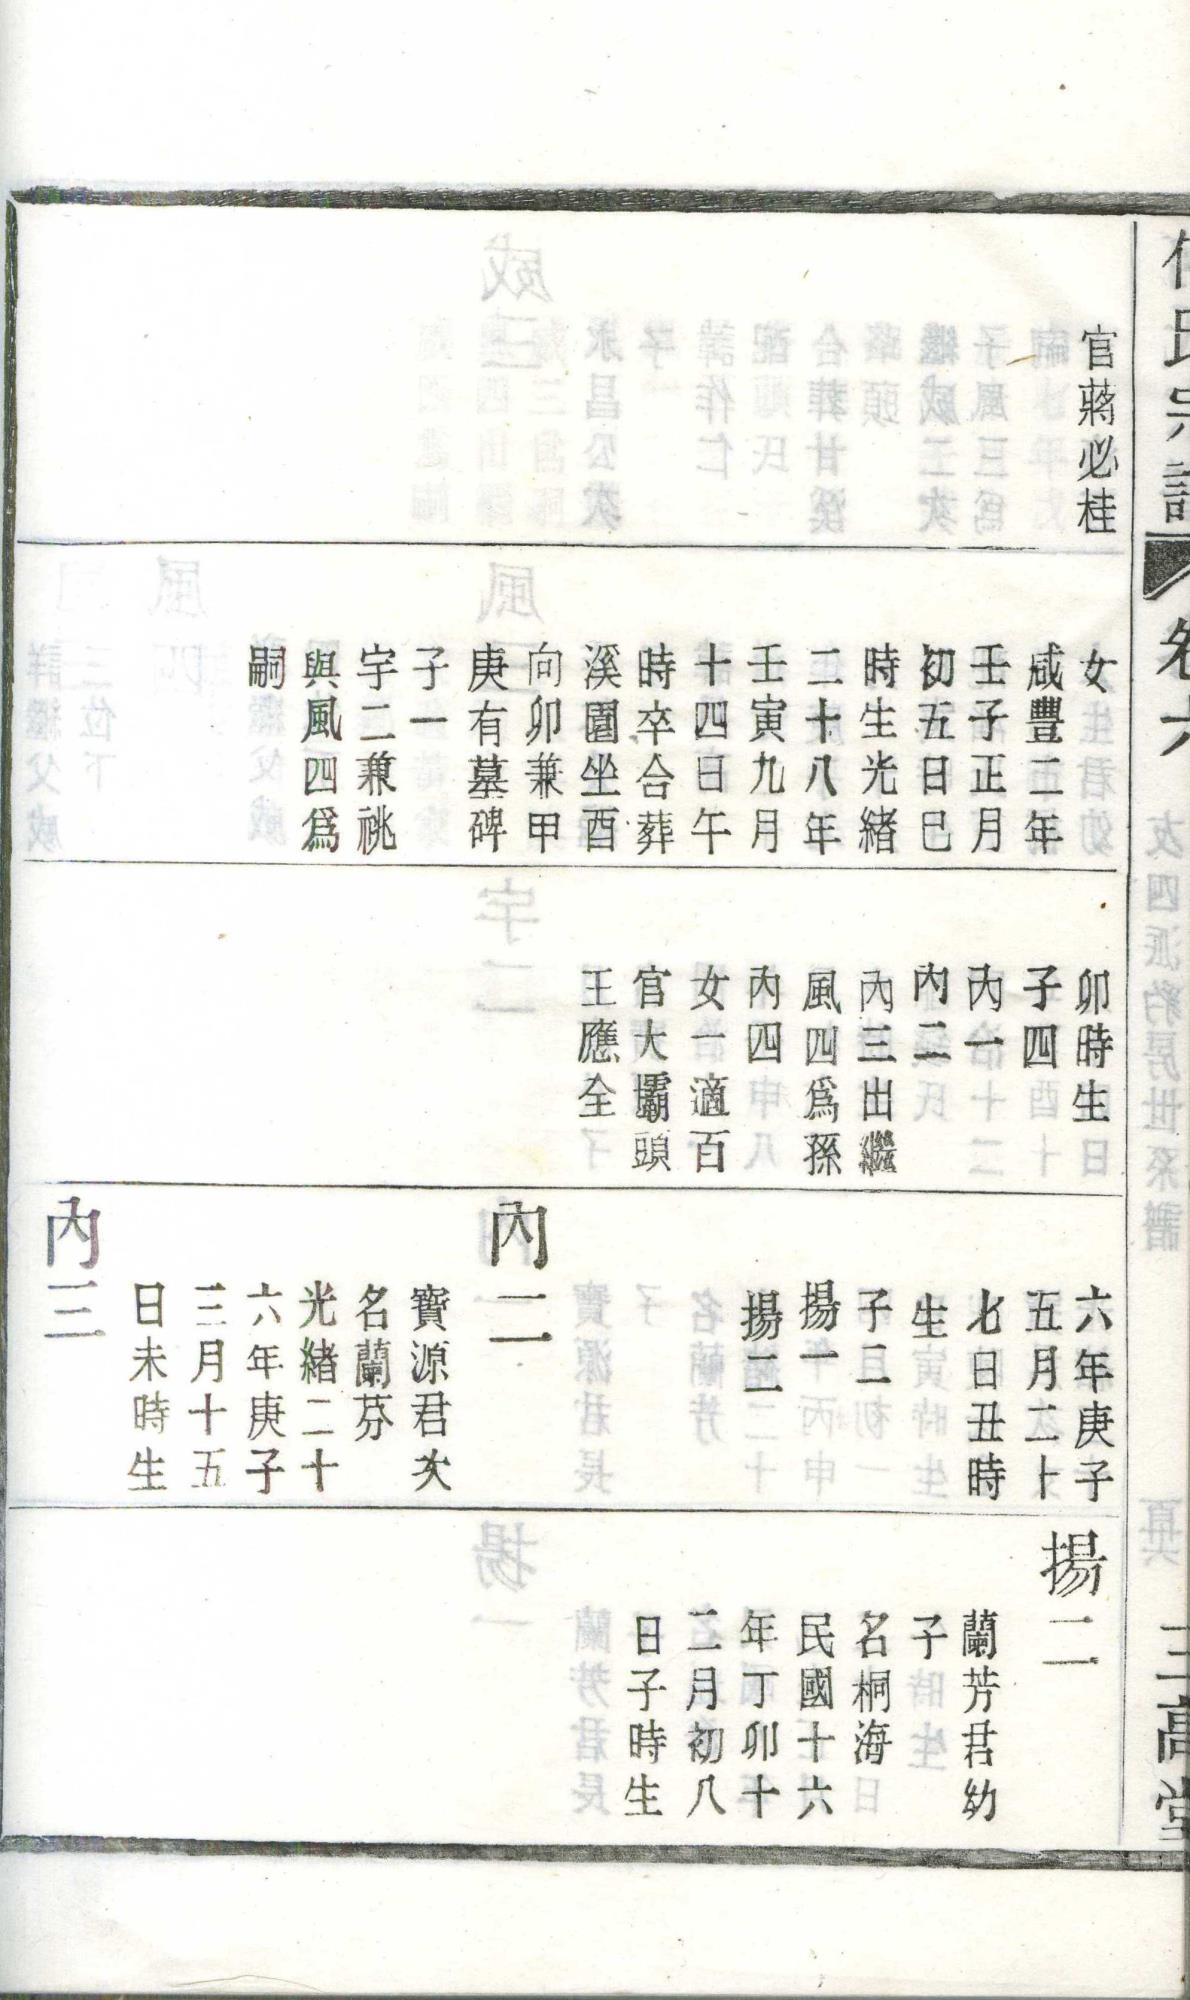 氏宗譜
卷六
三高堂
官蔣必桂
女
咸豐二年
壬子正月
初五日巳
時生光緒
二十八年
壬寅九月
十四日午
時卒合葬
溪園坐酉
向卯兼甲
庚有墓碑
子一
宇二兼祧
與風四爲
嗣
卯時生
子四
內一
內二
內三出繼
風四爲孫
內四
女一適百
官大壩頭
王應全
六年庚子
五月二十
七日丑時
生
子二
揚一
揚二
內二
寶源君次
名蘭芬
光緒二十
六年庚子
三月十五
日未時生
內三
揚二
蘭芳君幼
子
名桐海
民國十六
年丁卯十
二月初八
日子時生